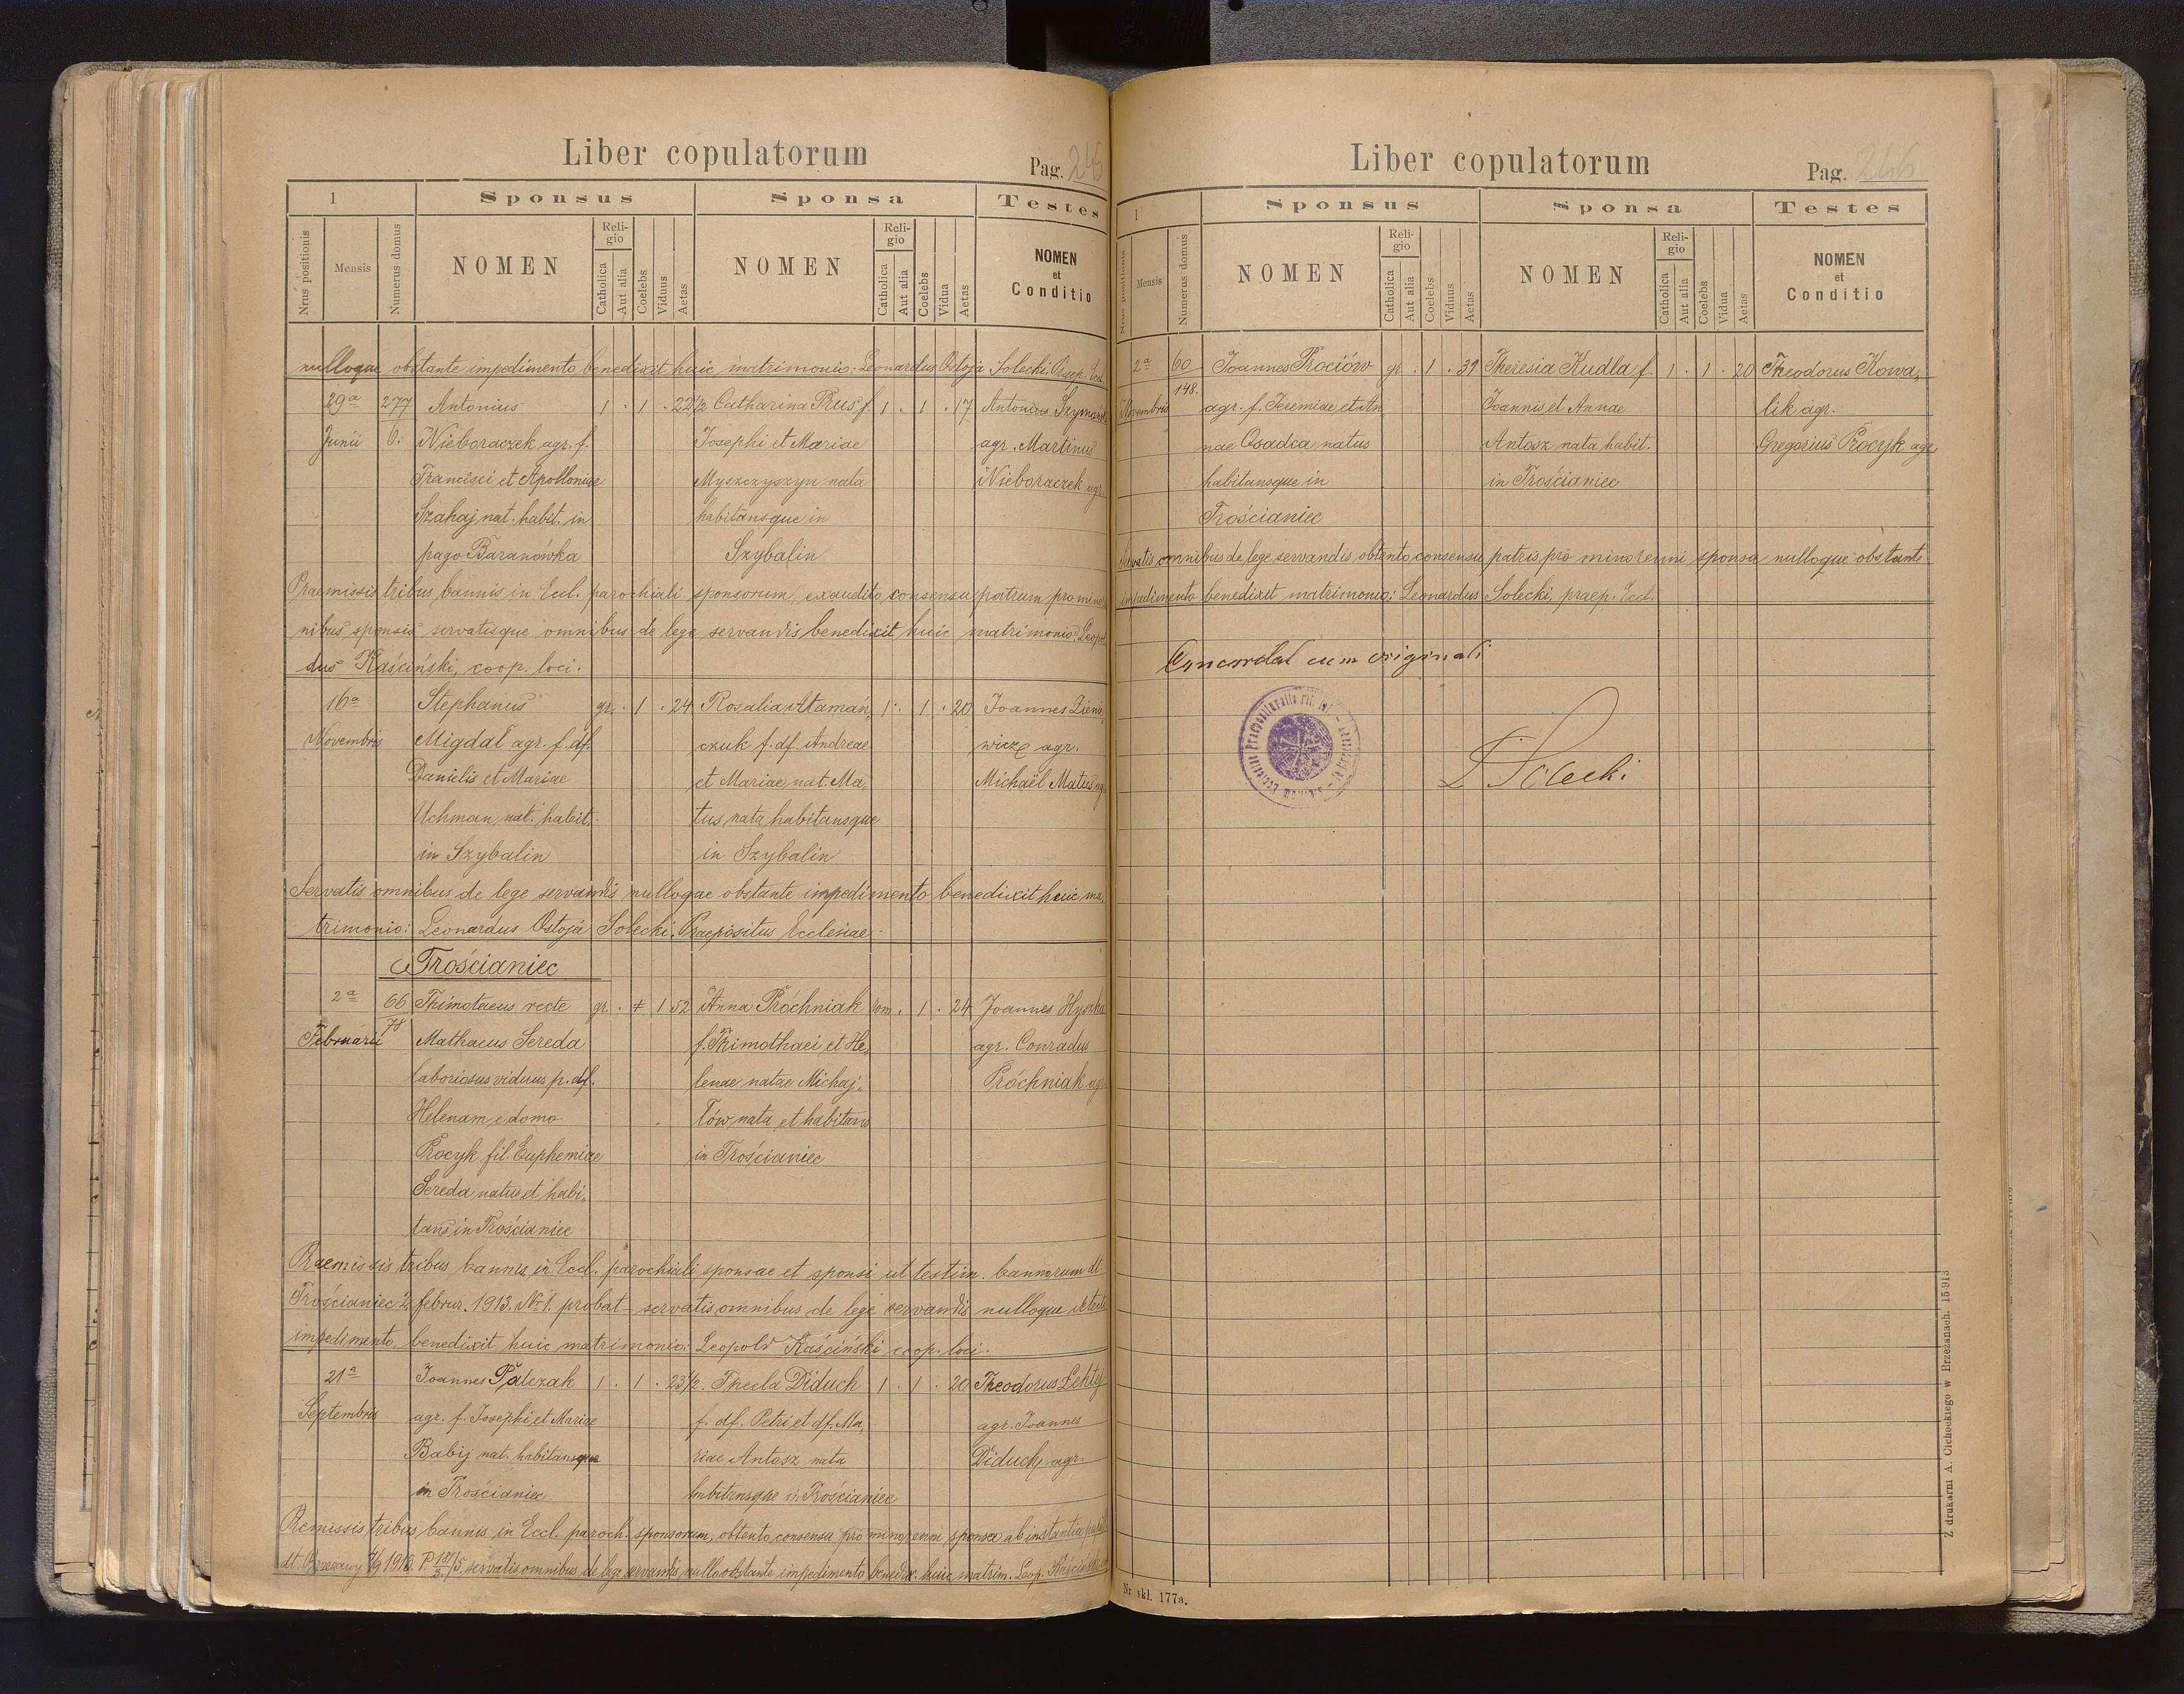 Liber copulatorum
Pag. 245
1 Sponsus Sponsa Testes
Nrus positionis Mensis Numerus domus NOMEN Religio Catholica Aut alia Coelebs Viduus Aetas NOMEN Religio Catholica Aut alia Coelebs Vidua Aetas NOMEN et Conditio
nulloque obstante impedimento benedixit huic matrimonio: Leonardus Ostoja Solecki Praep. Eccl.
29a 277 Antonius 1 . 1 . 22 1/2 Catharina Prus f. 1 . 1 . 17 Antonius
Junii 6. Nieboraczek agr. f. Josephi et Mariae agr. Martinus
Francisci et Apolloniae Myszczyszyn nata Nieboraczek agr.
Szahaj nat. habit. in habitansque in
pago Baranówka Szybalin
Praemissis tribus bannis in Eccl. parochiali sponsorum, exaudito consensu patrum pro minore
nibus sponsis servatisque omnibus de lege servandis benedixit huic matrimonio: Leopol
dus Kaściński, coop. loci.
16a Stephanus gr. . 1 . 24 Rosalia Ataman, 1 . 1 . 20 Joannes Ziena,
Novembris Migdal agr. f. df. czuk f. df. Andreae wicz agr.
Danielis et Mariae et Mariae nat. Ma, Michaël Matus agr.
Uchman nat. habit. tus nata habitansque
in Szybalin in Szybalin
Servatis omnibus de lege servandis nulloque obstante impedimento benedixit huic ma,
trimonio: Leonardus Ostoja Solecki. Praepositus Ecclesiae.
Trościaniec
2a 66 Thimotaeus recte gr. . 1 52 Anna Próchniak rom . 1 . 24 Joannes Hyszka
Februarii 78 Mathaeus Sereda f. Thimothaei et He, agr. Conradus
laboriosus viduus p. df. lenae natae Michaj, Próchniak agr
Helenam e domo łów nata et habitans
Procyk fil. Euphemiae in Trościaniec
Sereda natus et habi,
tans in Trościaniec
Praemissis tribus bannis in Eccl. parochiali sponsae et sponsi ut testim. bannorum dt
Trościaniec 2 februr. 1913. Nr 1. probat - servatis omnibus de lege servandis nulloque
impedimento, benedixit huic matrimonio: Leopold Kaściński coop. loci.
21a Joannes Palczak 1 . 1 . 23 1/2. Thecla Diduch 1 . 1 . 20 Theodorus Lehtej
Septembris agr. f. Josephi et Mariae f. df. Petri et df. Ma, agr. Joannes
Babij nat. habitansque riae Antosz nata Diduch agr.
in Trościaniec habitansque in Trościaniec
Premissis tribus bannis in Eccl. paroch. sponsorum, obtento consensu pro minorenni sponsa ab instantia
dt Brzeżany 1913. servatis omnibus de lege servandis nullo obstante impedimento benedix. huic matrim. Leop. Kaściński
Liber copulatorum
Pag. 246
1 Sponsus Sponsa Testes
Nrus positionis Mensis Numerus domus NOMEN Religio Catholica Aut alia Coelebs Viduus Aetas NOMEN Religio Catholica Aut alia Coelebs Vidua Aetas NOMEN et Conditio
2a 60 Joannes Prociów gr . 1 . 39 Theresia Kudla f. 1 . 1 . 20 Theodorus Kowa,
Novembris 148. agr. f. Jeremiae et An Joannis et Annae lik agr.
nae Osadca natus Antosz nata habit. Gregorius Procyk agr
habitansque in in Trościaniec
Trościaniec
Servatis omnibus de lege servandis obtento consensu patris pro minorenni sponsa nulloque obstante
impedimento benedixit matrimonio: Leonardus Solecki, praep. Eccl.
Concordat cum originali
L Solecki
Z drukarni A. Cichockiego w Brzeżanach. 15·913
Nr skł. 177a.